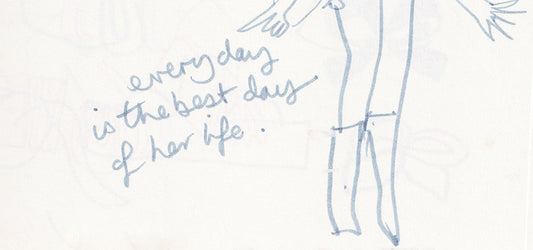 everyday
is the best day
of her life.